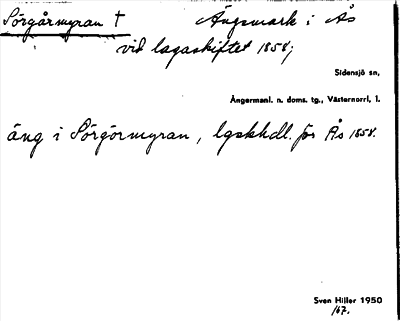 Sörgårmyran † Ängsmark i Ås
vid lagaskiftet 1858;
Sidensjö sn,
Ångermanl. n. doms. tg., Västernorrl. l.
äng i Sörgörmyran, lgskhdl. för Ås 1858.
Sven Hiller 1950
167.